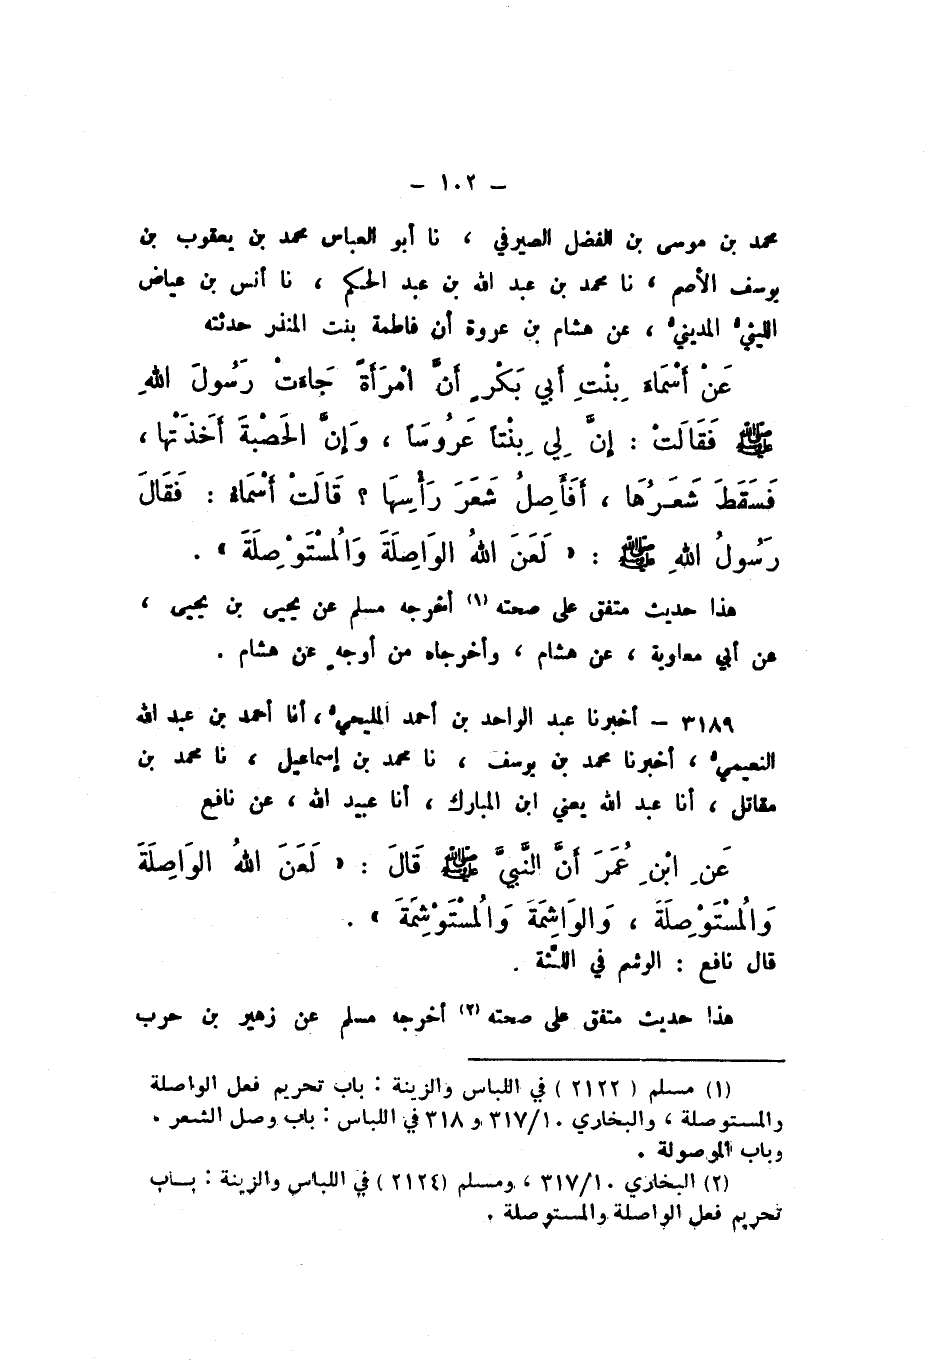 - ١٠٢ -
محمد بن موسى بن الفضل الصيرفي ، نا أبو العباس محمد بن يعقوب بن
يوسف الأصم ، نا محمد بن عبد الله بن عبد الحكم ، نا أنس بن عياض
الليثيُّ المدينيُّ ، عن هشام بن عروة أن فاطمة بنت المنذر حدثته
عَنْ أَسْمَاءَ بِنْتِ أَبي بَكْرٍ أَنَّ امْرَأَةً جَاءَتْ رَسُولَ اللهِ
ﷺ فَقَالَتْ : إِنَّ لِي بِنْتاً عَرُوسَاً ، وَإِنَّ الحَصْبَةَ أَخَذَتْها ،
فَسَقَطَ شَعَرُهَا ، أَفَأَصِلُ شَعَرَ رَأْسِهَا ؟ قَالَتْ أَسْمَاءُ : فَقَالَ
رَسُولُ اللهِ ﷺ : « لَعَنَ اللهُ الوَاصِلَةَ وَالمُسْتَوْصِلَةَ » .
هذا حديث متفق على صحته (١) أخرجه مسلم عن يحيى بن يحيى ،
عن أبي معاوية ، عن هشام ، وأخرجاه من أوجهٍ عن هشام .
٣١٨٩ - أخبرنا عبد الواحد بن أحمد المليحيُّ ، أنا أحمد بن عبد الله
النعيميُّ ، أخبرنا محمد بن يوسف ، نا محمد بن إسماعيل ، نا محمد بن
مقاتل ، أنا عبد الله يعني ابن المبارك ، أنا عبيد الله ، عن نافع
عَنِ ابْنِ عُمَرَ أَنَّ النَّبيَّ ﷺ قَالَ : « لَعَنَ اللهُ الوَاصِلَةَ
وَالمُسْتَوْصِلَةَ ، وَالوَاشِمَةَ وَالمُسْتَوْشِمَةَ » .
قال نافع : الوشم في اللِّثة .
هذا حديث متفق على صحته (٢) أخرجه مسلم عن زهير بن حرب
(١) مسلم ( ٢١٢٢ ) في اللباس والزينة : باب تحريم فعل الواصلة
والمستوصلة ، والبخاري ٣١٧/١٠ و ٣١٨ في اللباس : باب وصل الشعر .
وباب الموصولة .
(٢) البخاري ٣١٧/١٠ ، ومسلم (٢١٢٤ ) في اللباس والزينة : باب
تحريم فعل الواصلة والمستوصلة .